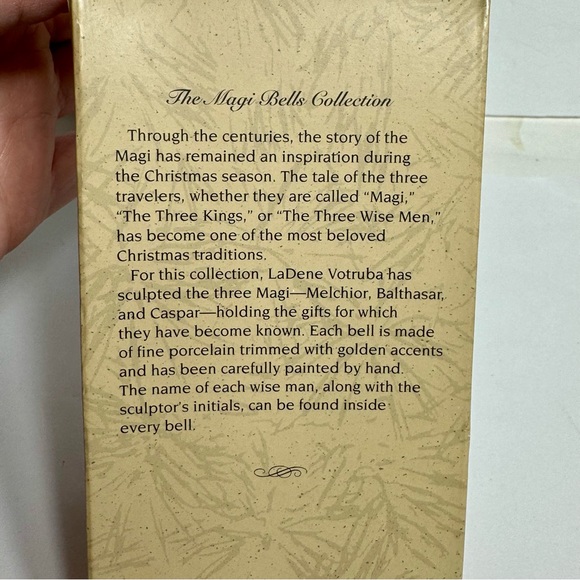 The Magi Bells Collection
Through the centuries, the story of the
Magi has remained an inspiration during
the Christmas season. The tale of the three
travelers, whether they are called “Magi,”
“The Three Kings,” or “The Three Wise Men,”
has become one of the most beloved
Christmas traditions.
For this collection, LaDene Votruba has
sculpted the three Magi—Melchior, Balthasar,
and Caspar—holding the gifts for which
they have become known. Each bell is made
of fine porcelain trimmed with golden accents
and has been carefully painted by hand.
The name of each wise man, along with the
sculptor’s initials, can be found inside
every bell.